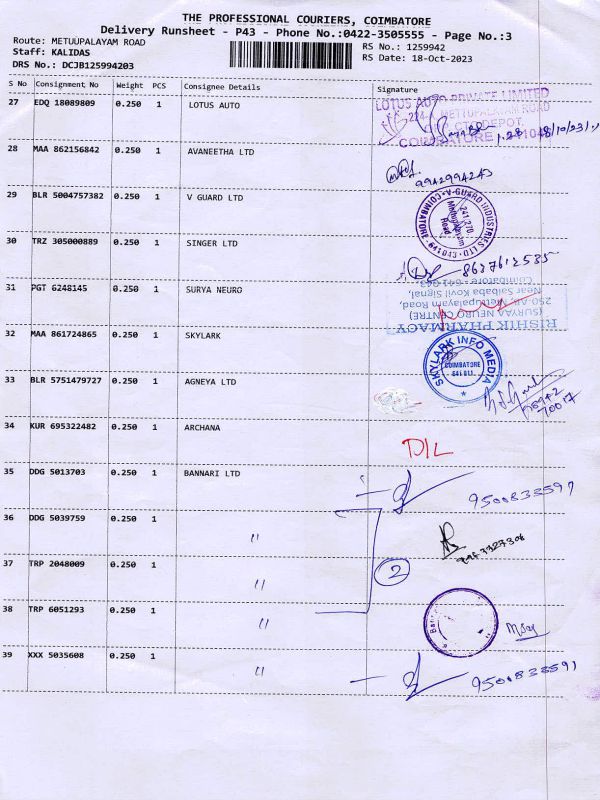 THE PROFESSIONAL COURIERS, COIMBATORE
Delivery Runsheet - P43 - Phone No.:0422-3505555 - Page No.:3
Route: METUUPALAYAM ROAD
Staff: KALIDAS
RS No.: 1259942
DRS No.: DCJB125994203
RS Date: 18-Oct-2023
S No Consignment No Weight PCS Consignee Details Signature
27 EDQ 18089809 0.250 1 LOTUS AUTO
LOTUS AUTO PRIVATE LIMITED
METTUPALAYAM ROAD
COIMBATORE
18/10/23
28 MAA 862156842 0.250 1 AVANEETHA LTD
9942994243
29 BLR 5004757382 0.250 1 V GUARD LTD
V-GUARD INDUSTRIES LTD
COIMBATORE 641 043
Mettupalayam
Road
30 TRZ 305000889 0.250 1 SINGER LTD
8637612535
31 PGT 6248145 0.250 1 SURYA NEURO
RISHIK PHARMACY
(SURYAA NEURO CENTRE)
Mettupalayam Road,
Near Saibaba Kovil Signal,
Coimbatore - 641 043
32 MAA 861724865 0.250 1 SKYLARK
SKYLARK INFO MEDIA
COIMBATORE
33 BLR 5751479727 0.250 1 AGNEYA LTD
34 KUR 695322482 0.250 1 ARCHANA
D/L
35 DDG 5013703 0.250 1 BANNARI LTD
9500833591
36 DDG 5039759 0.250 1 〃
37 TRP 2048009 0.250 1 〃
2
38 TRP 6051293 0.250 1 〃
39 XXX 5035608 0.250 1 〃
9500833591